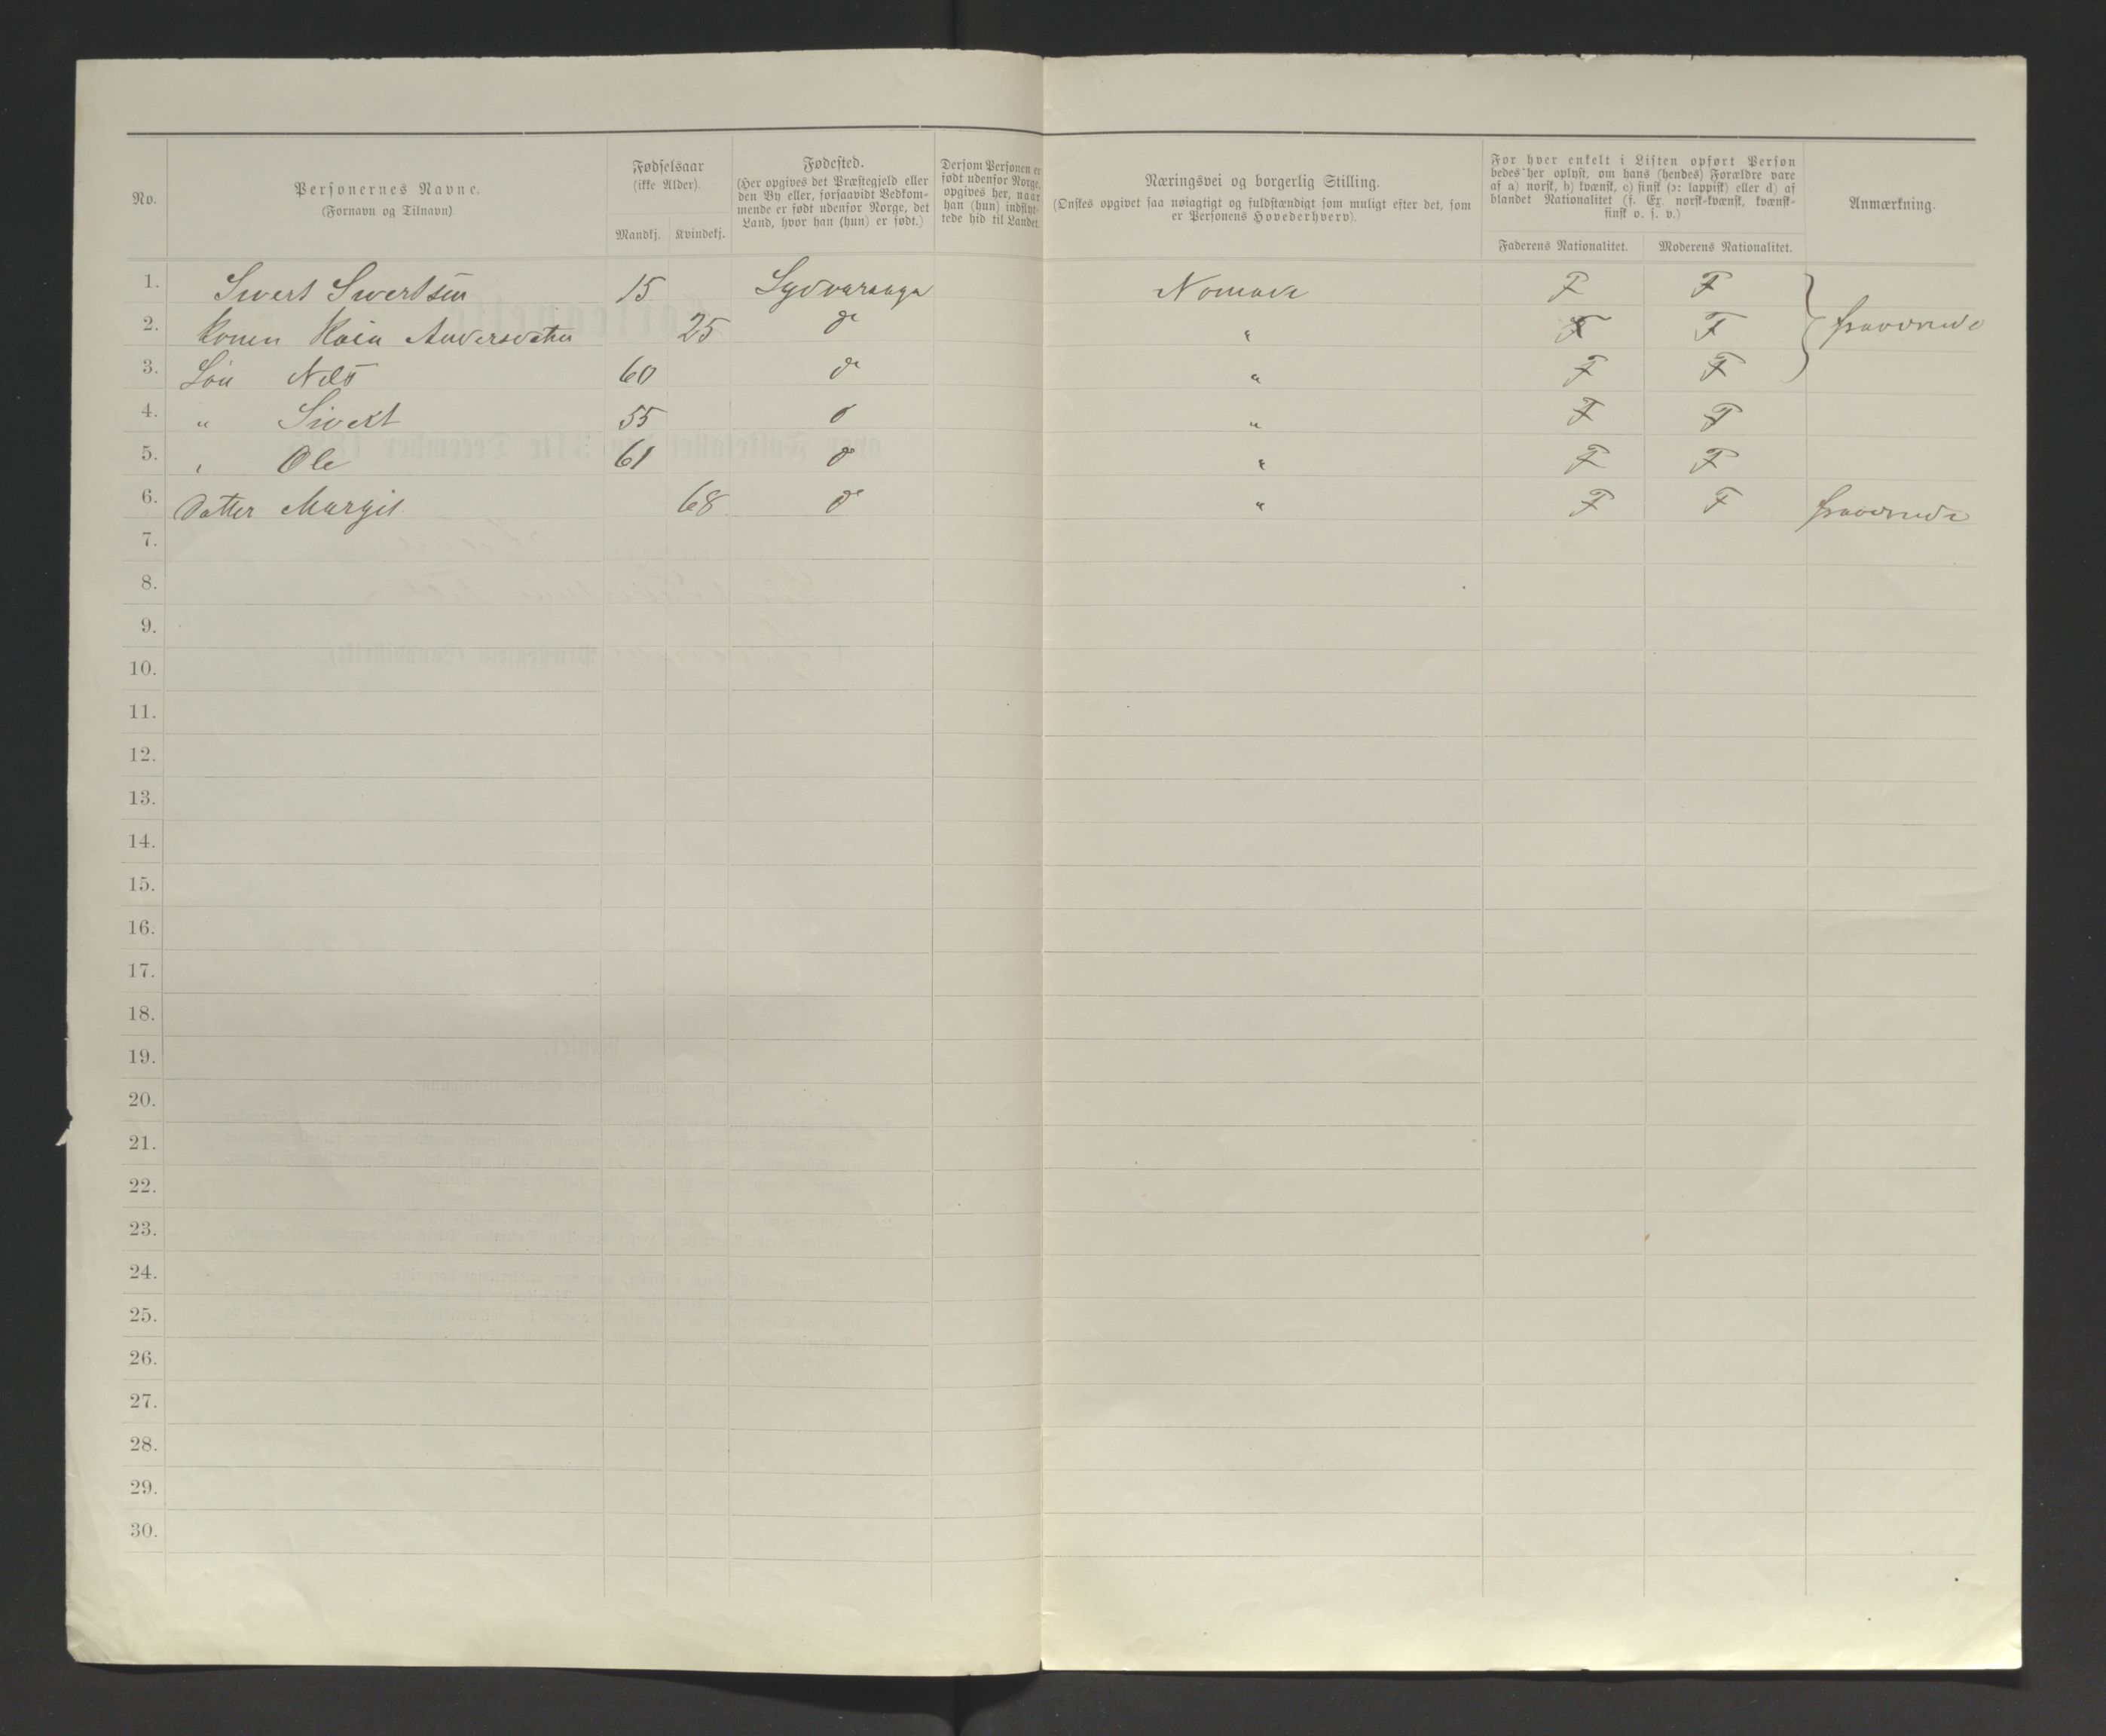 No.
Personernes Navne.
(Fornavn og Tilnavn).
Fødselsaar
(ikke Alder).
Mandkj. Kvindekj.
Fødested.
(Her opgives det Præstegjeld eller
den By eller, forsaavidt Vedkom-
mende er født udenfor Norge, det
Land, hvor han (hun) er født.)
Dersom Personen er
født udenfor Norge,
opgives her, naar
han (hun) indflyt-
tede hid til Landet.
Næringsvei og borgerlig Stilling.
(Ønskes opgivet saa nøiagtigt og fuldstændigt som muligt efter det, som
er Personens Hovederhverv).
For hver enkelt i Listen opført Person
bedes her oplyst, om hans (hendes) Forældre vare
af a) norsk, b) kvænsk, c) finsk (ɔ: lappisk) eller d) af
blandet Nationalitet (s. Ex. norsk-kvænsk, kvænsk-
finsk o. s. v.)
Faderens Nationalitet. Moderens Nationalitet.
Anmærkning.
1. Sivert Sivertsen 15 Sydvaranger Nomade F F
2. Konen Kaia Andersdatter 25 do " F F fraværende
3. Søn Nils 60 do " F F
4. " Sivert 55 do " F F
5. " Ole 61 do " F F
6. Datter Margit 68 do " F F fraværende
7.
8.
9.
10.
11.
12.
13.
14.
15.
16.
17.
18.
19.
20.
21.
22.
23.
24.
25.
26.
27.
28.
29.
30.